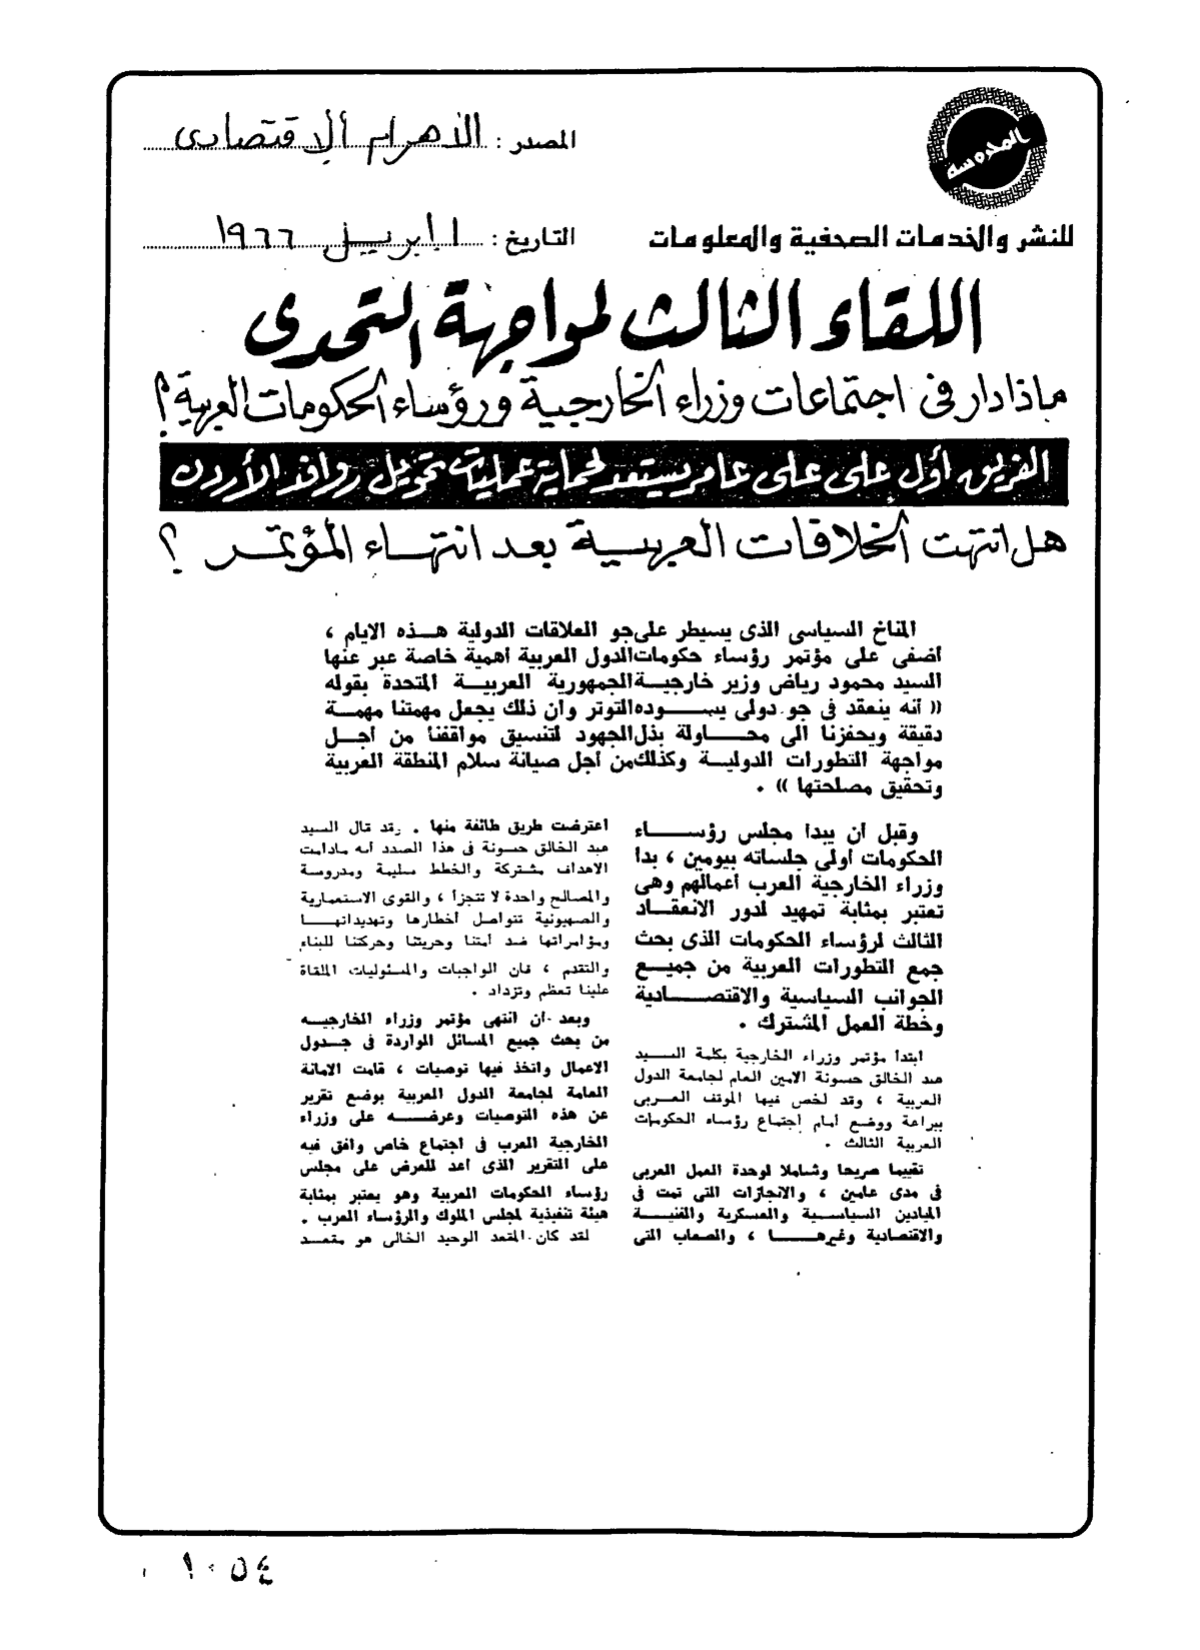 المدوسة
المصدر : الأهرام الإقتصادى
للنشر والخدمات الصحفية والمعلومات
التاريخ : ١ ابريل ١٩٦٦
اللقاء الثالث لمواجهة التحدى
ماذا دار فى اجتماعات وزراء الخارجية ورؤساء الحكومات العربية ؟
الفريق أول على على عامر يستعد لحماية عمليات تحويل روافد الأردن
هل انتهت الخلافات العربية بعد انتهاء المؤتمر ؟
المناخ السياسى الذى يسيطر على جو العلاقات الدولية هذه الايام ،
أضفى على مؤتمر رؤساء حكومات الدول العربية أهمية خاصة عبر عنها
السيد محمود رياض وزير خارجية الجمهورية العربية المتحدة بقوله
(( أنه ينعقد فى جو دولى يسوده التوتر وأن ذلك يجعل مهمتنا مهمة
دقيقة ويحفزنا الى محاولة بذل الجهود لتنسيق مواقفنا من أجل
مواجهة التطورات الدولية وكذلك من أجل صيانة سلام المنطقة العربية
وتحقيق مصلحتها )) .
وقبل أن يبدأ مجلس رؤساء
الحكومات أولى جلساته بيومين ، بدأ
وزراء الخارجية العرب أعمالهم وهى
تعتبر بمثابة تمهيد لدور الانعقاد
الثالث لرؤساء الحكومات الذى بحث
جمع التطورات العربية من جميع
الجوانب السياسية والاقتصادية
وخطة العمل المشترك .
ابتدأ مؤتمر وزراء الخارجية بكلمة السيد
عبد الخالق حسونة الامين العام لجامعة الدول
العربية ، وقد لخص فيها الموقف العربى
ببراعة ووضع أمام اجتماع رؤساء الحكومات
العربية الثالث .
تقييما صريحا وشاملا لوحدة العمل العربى
فى مدى عامين ، والانجازات التى تمت فى
الميادين السياسية والعسكرية والفنية
والاقتصادية وغيرها ، والصعاب التى
اعترضت طريق طائفة منها . وقد قال السيد
عبد الخالق حسونة فى هذا الصدد أنه مادامت
الاهداف مشتركة والخطط سليمة ومدروسة
والمصالح واحدة لا تتجزأ ، والقوى الاستعمارية
والصهيونية تتواصل أخطارها وتهديداتها
ومؤامراتها ضد أمتنا وحريتنا وحركتنا للبناء
والتقدم ، فان الواجبات والمسئوليات الملقاة
علينا تعظم وتزداد .
وبعد أن انتهى مؤتمر وزراء الخارجيه
من بحث جميع المسائل الواردة فى جدول
الاعمال واتخذ فيها توصيات ، قامت الامانة
العامة لجامعة الدول العربية بوضع تقرير
عن هذه التوصيات وعرضه على وزراء
الخارجية العرب فى اجتماع خاص وافق فيه
على التقرير الذى أعد للعرض على مجلس
رؤساء الحكومات العربية وهو يعتبر بمثابة
هيئة تنفيذية لمجلس الملوك والرؤساء العرب .
لقد كان المقعد الوحيد الخالى هو مقعد
١٠٥٤